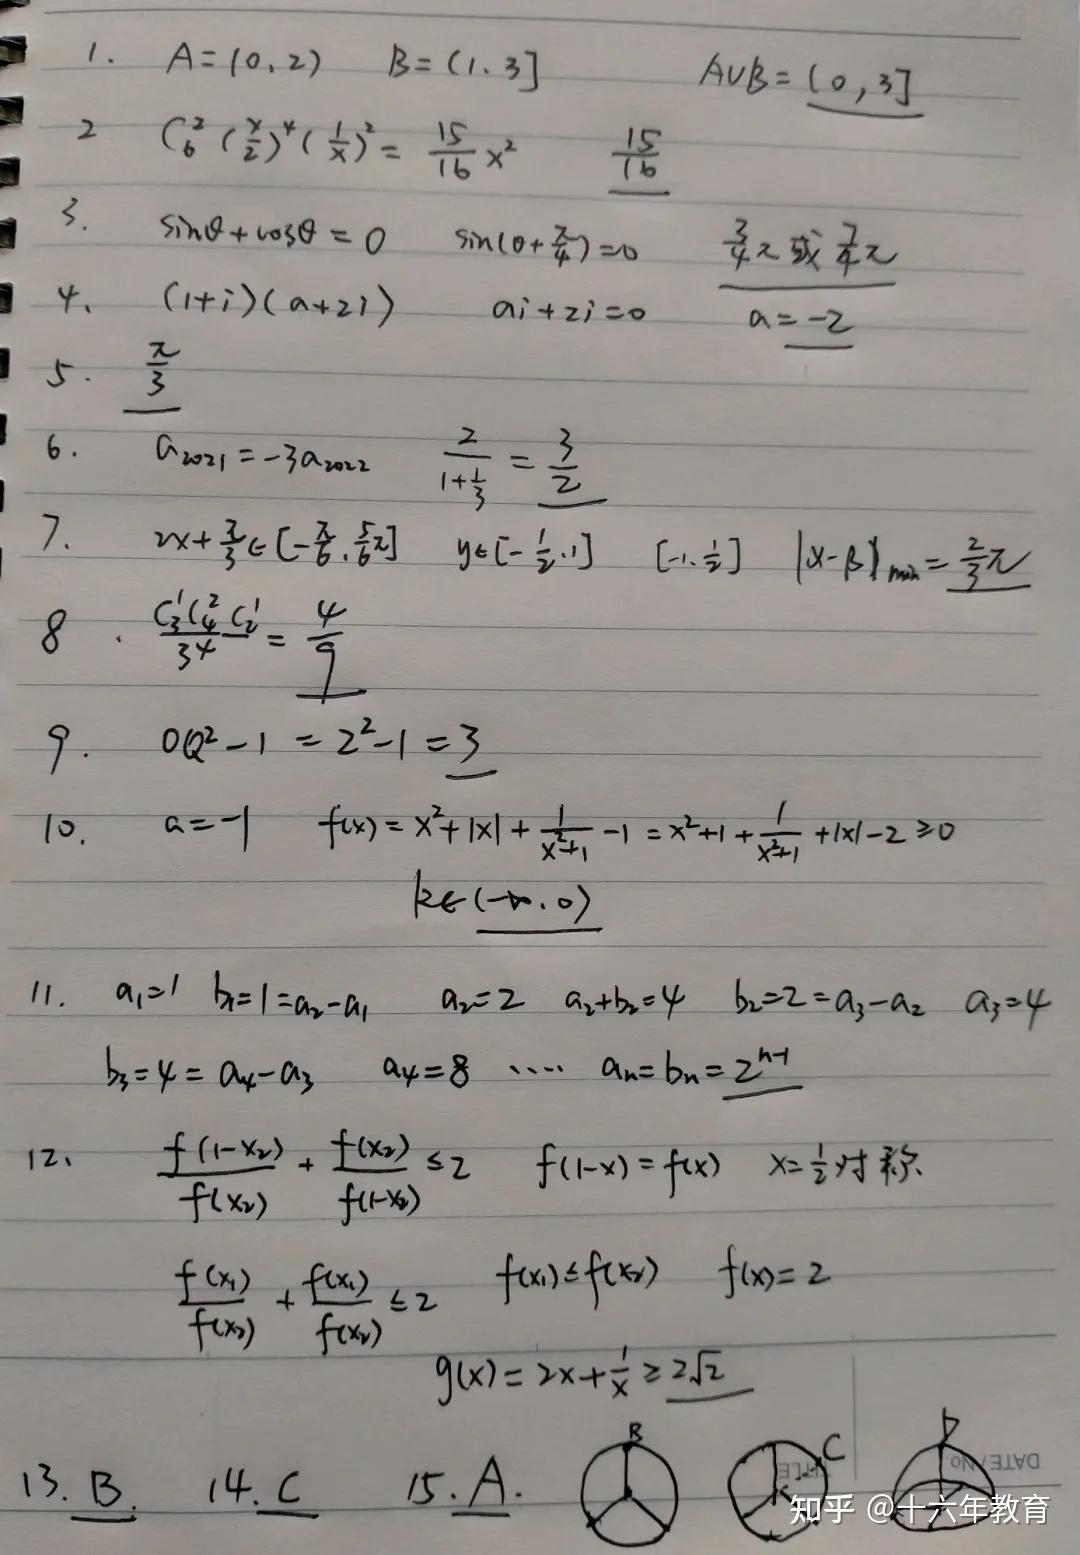 1. A=(0,2) B=(1,3] A∪B=(0,3]
2 C₆² (x/2)⁴ (1/x)² = 15/16 x² 15/16
3. sinθ+cosθ=0 sin(θ+π/4)=0 3/4π或7/4π
4. (1+i)(a+2i) ai+2i=0 a=-2
5. π/3
6. a₂₀₂₁=-3a₂₀₂₂ 2/(1+1/3) = 3/2
7. 2x+π/3∈[-π/6,5/6π] y∈[-1/2,1] [-1,1/2] |α-β|min=2/3π
8. C₃¹C₄²C₂¹/3⁴ = 4/9
9. OQ²-1=2²-1=3
10. a=-1 f(x)=x²+|x|+1/(x²+1)-1=x²+1+1/(x²+1)+|x|-2≥0
k∈(-∞,0)
11. a₁=1 b₁=1=a₂-a₁ a₂=2 a₂+b₂=4 b₂=2=a₃-a₂ a₃=4
b₃=4=a₄-a₃ a₄=8 ···· aₙ=bₙ=2ⁿ⁻¹
12. f(1-x₂)/f(x₂) + f(x₂)/f(1-x₂) ≤2 f(1-x)=f(x) x=1/2对称
f(x₁)/f(x₂) + f(x₁)/f(x₂) ≤2 f(x₁)≤f(x₂) f(x)=2
g(x)=2x+1/x≥2√2
13. B. 14. C 15. A. B C P
DATE/NO.
TITLE
知乎 @十六年教育